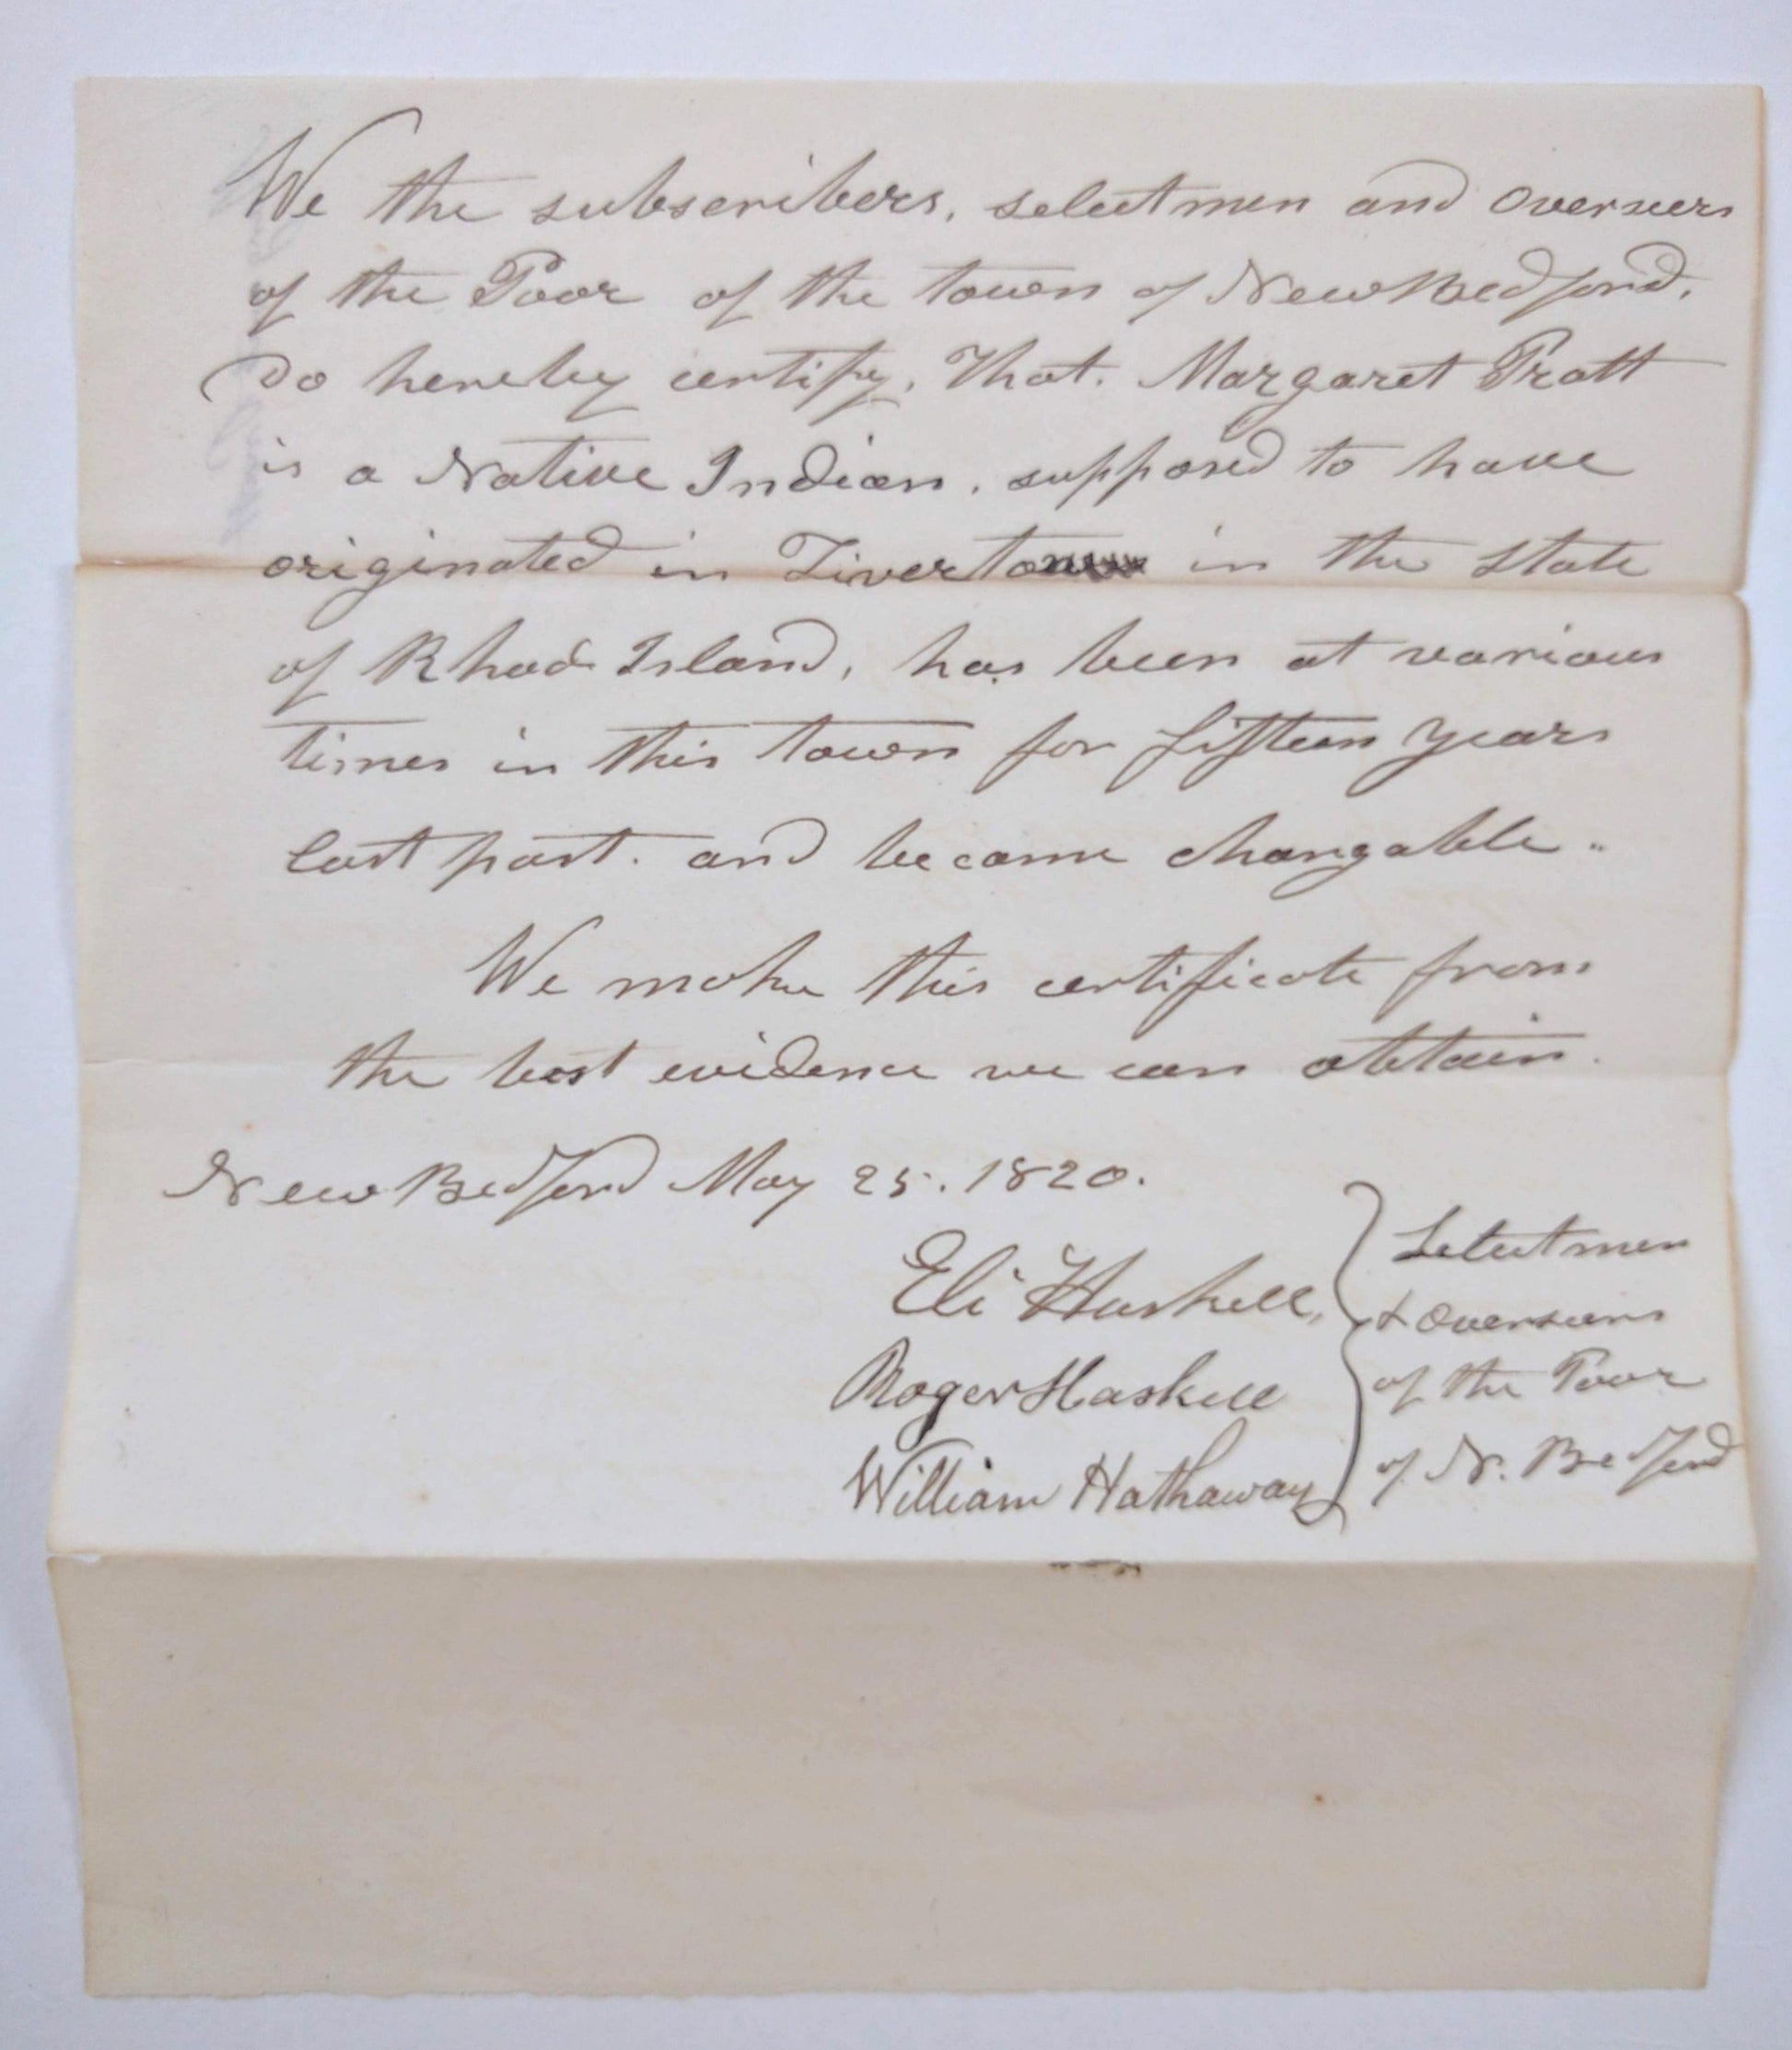 We the subscribers, selectmen and Overseers
of the Poor of the town of New Bedford,
Do hereby certify, That. Margaret Pratt
is a Native Indian, supposed to have
originated in Tiverton in the State
of Rhode Island, has been at various
times in this town for fifteen years
last past. and became changable.
We make this certificate from
the best evidence we can obtain.
New Bedford May 25. 1820.
Eli Haskell,
Roger Haskell
William Hathaway
Selectmen
& Overseers
of the Poor
of N. Bedford